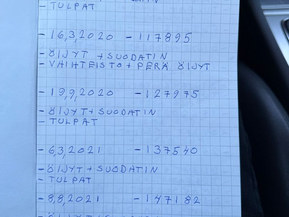 - TULPAT
- 16,3,2020 - 117895
- ÖIJYT + SUODATIN
- VAIHTEISTO + PERÄ ÖIJYT
- 19,9,2020 - 127975
- ÖIJYT + SUODATIN
- TULPAT
- 6,3,2021 - 137540
- ÖIJYT + SUODATIN
- TULPAT
- 8,8,2021 - 147182